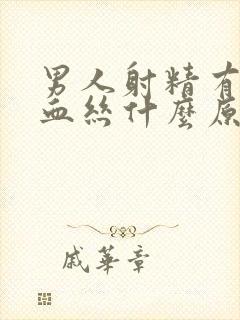 男人射精有
血丝什麼原
戚華章